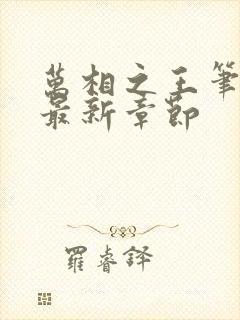 萬相之王筆
最新章節
羅睿鐸